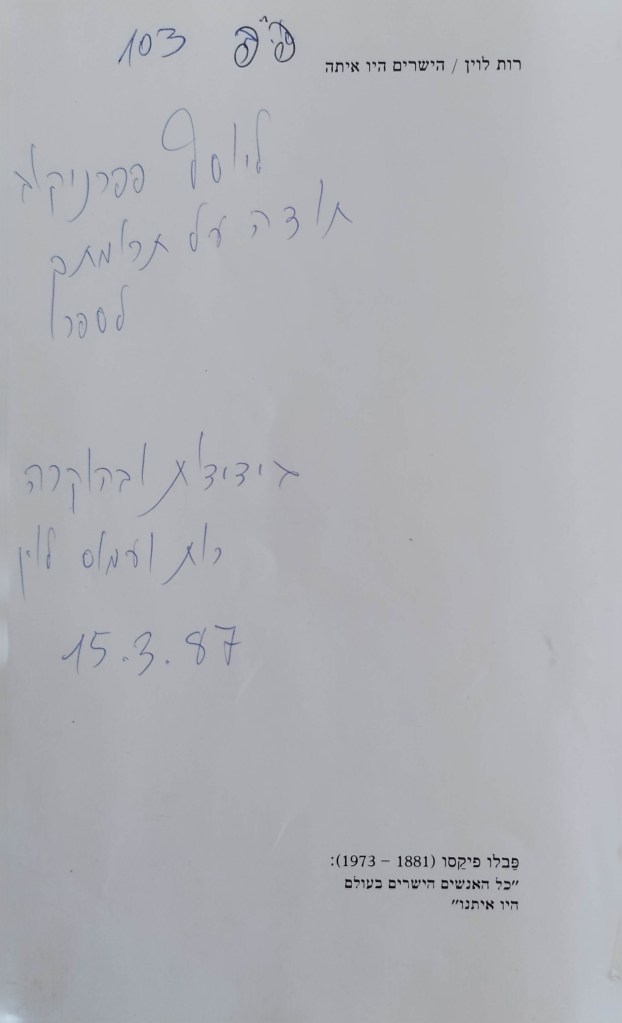 103 פ״פ
רות לוין / הישרים היו איתה
ליוסף פפרניקוב
תודה על תרומתך
לספרו
בידידות ובהוקרה
רות ועמוס לוין
15.3.87
פַּבּלו פיקַסו (1881 – 1973):
״כל האנשים הישרים בעולם
היו איתנו״